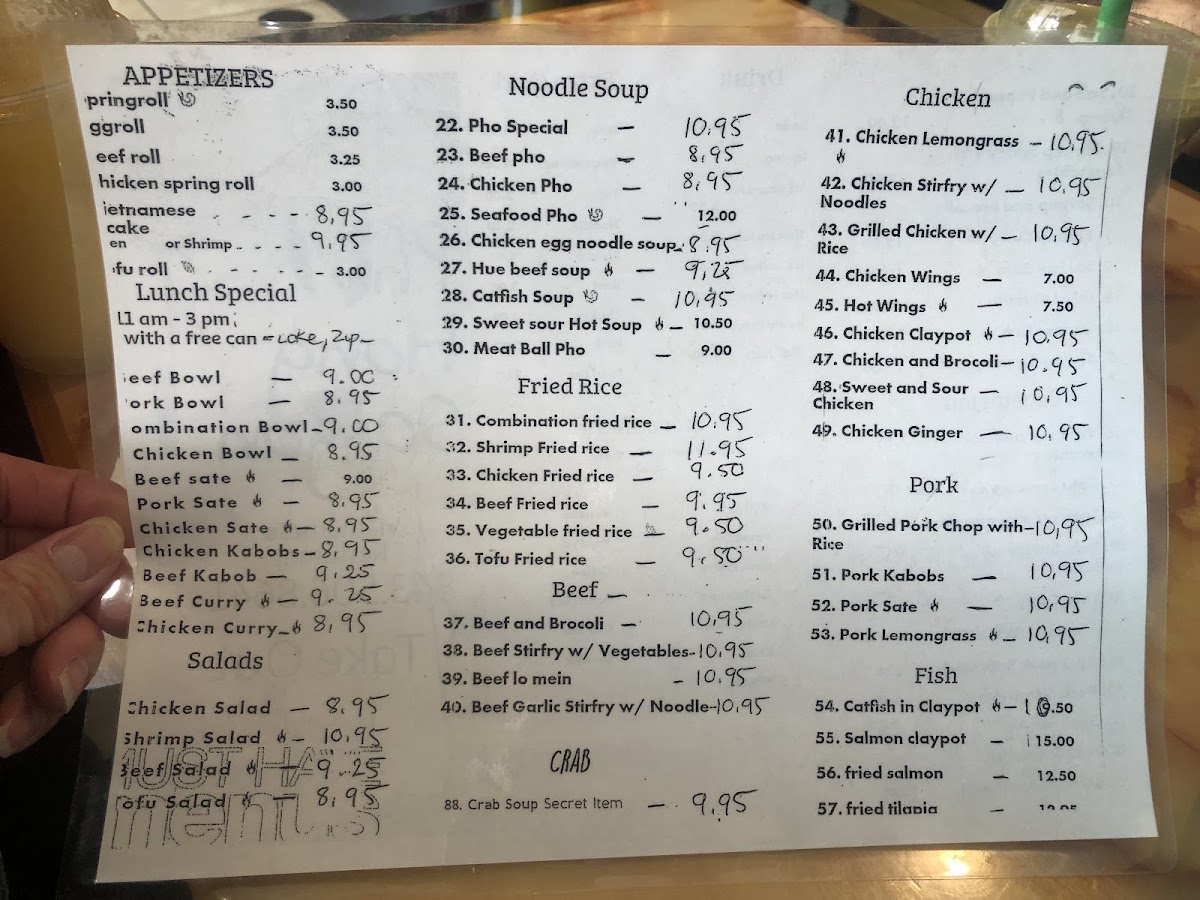 APPETIZERS
pringroll 3.50
ggroll 3.50
eef roll 3.25
hicken spring roll 3.00
ietnamese - - - - 8,95
cake
en or Shrimp - - - - 9.95
fu roll - - - - - - 3.00
Lunch Special
11 am - 3 pm
with a free can =
eef Bowl — 9.00
ork Bowl — 8.95
ombination Bowl - 9.00
Chicken Bowl — 8.95
Beef sate — 9.00
Pork Sate — 8,95
Chicken Sate — 8,95
Chicken Kabobs - 8,95
Beef Kabob — 9.25
Beef Curry — 9.25
Chicken Curry - 8,95
Salads
Chicken Salad — 8.95
Shrimp Salad — 10.95
Beef Salad — 9.25
Tofu Salad — 8,95
MUST HA
menus
Noodle Soup
22. Pho Special — 10.95
23. Beef pho — 8,95
24. Chicken Pho — 8,95
25. Seafood Pho — 12.00
26. Chicken egg noodle soup - 8.95
27. Hue beef soup — 9,25
28. Catfish Soup — 10,95
29. Sweet sour Hot Soup — 10.50
30. Meat Ball Pho — 9.00
Fried Rice
31. Combination fried rice — 10.95
32. Shrimp Fried rice — 11.95
33. Chicken Fried rice — 9.50
34. Beef Fried rice — 9.95
35. Vegetable fried rice 9.50
36. Tofu Fried rice — 9.50
Beef —
37. Beef and Brocoli — 10,95
38. Beef Stirfry w/ Vegetables - 10.95
39. Beef lo mein - 10.95
40. Beef Garlic Stirfry w/ Noodle - 10.95
CRAB
88. Crab Soup Secret Item — 9.95
Chicken
41. Chicken Lemongrass - 10,95
42. Chicken Stirfry w/ — 10,95
Noodles
43. Grilled Chicken w/ — 10,95
Rice
44. Chicken Wings — 7.00
45. Hot Wings — 7.50
46. Chicken Claypot — 10.95
47. Chicken and Brocoli — 10.95
48. Sweet and Sour — 10,95
Chicken
49. Chicken Ginger — 10,95
Pork
50. Grilled Pork Chop with - 10,95
Rice
51. Pork Kabobs — 10,95
52. Pork Sate — 10,95
53. Pork Lemongrass — 10,95
Fish
54. Catfish in Claypot —
55. Salmon claypot — 15.00
56. fried salmon — 12.50
57. fried tilapia —